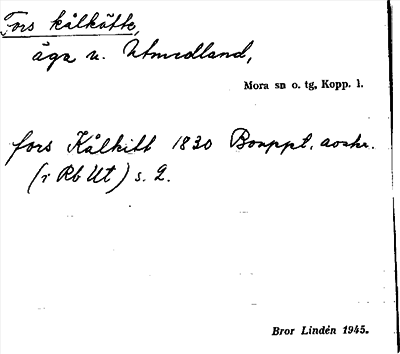 Fors kålkätte,
äga u. Utmedland,
Mora sn o. tg, Kopp. l.
fors Kålkitt 1830 Bouppt. avskr.
(i Rb Ut) s. 2.
Bror Lindén 1945.